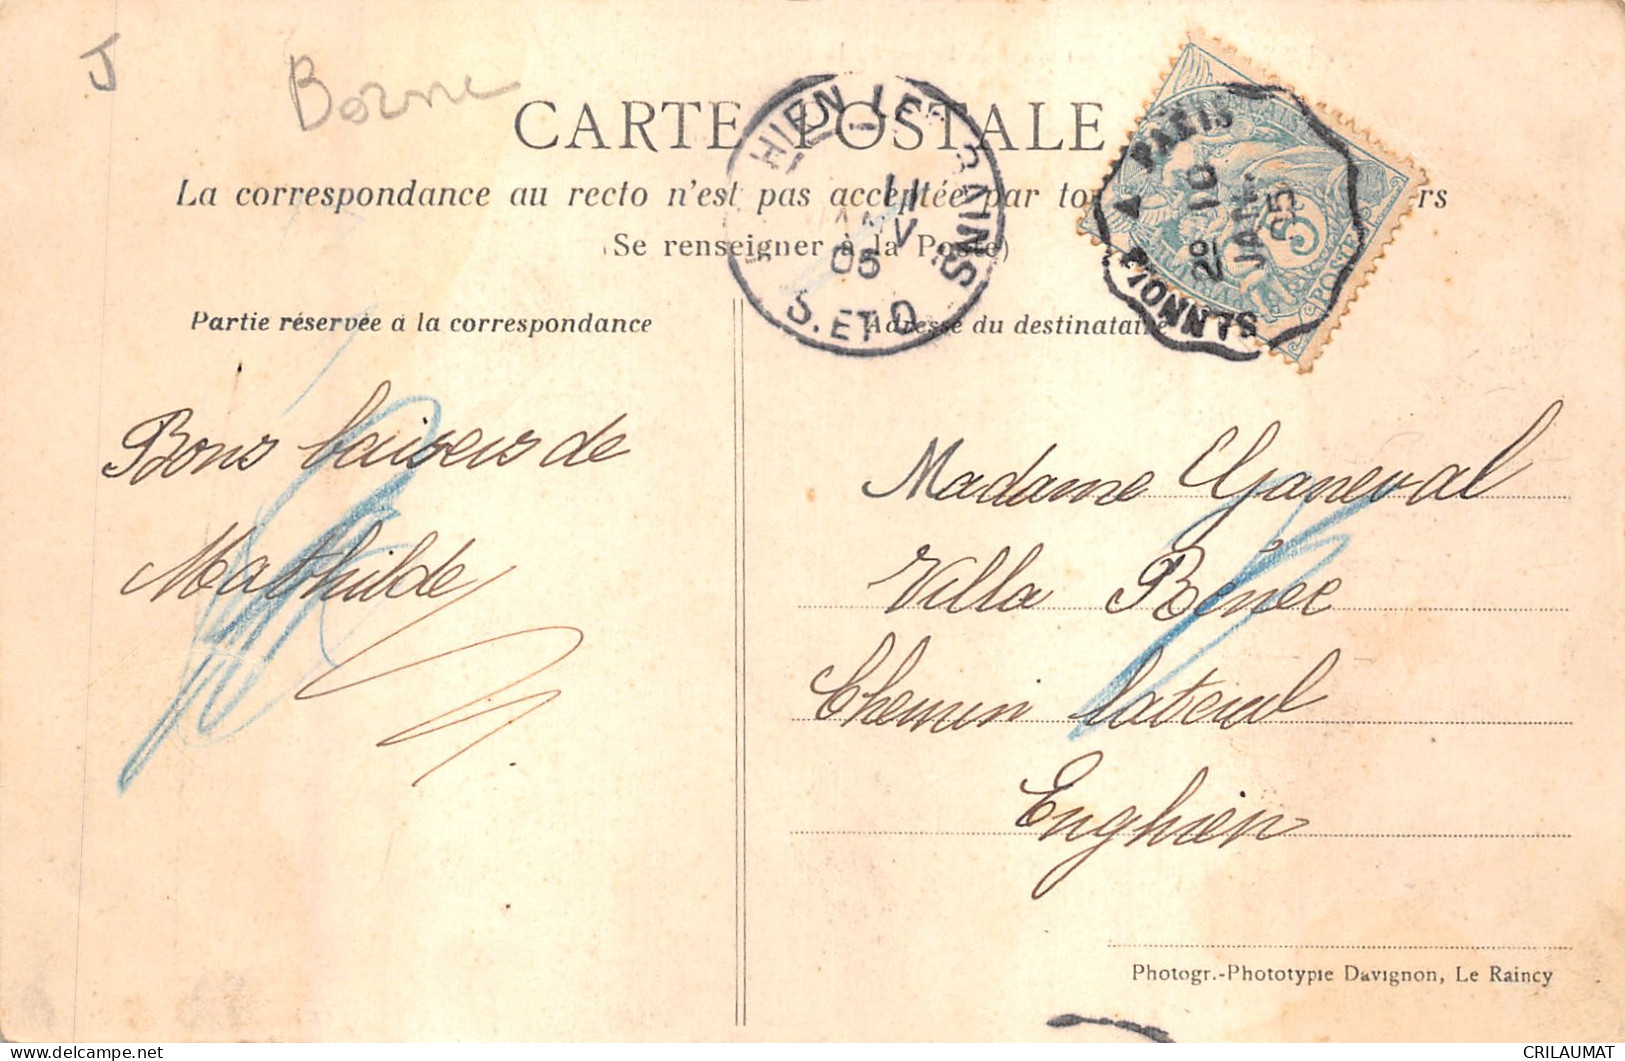 J
Borne
CARTE POSTALE
La correspondance au recto n'est pas acceptée par to rs
(Se renseigner à la Poste)
HIEN LES BAINS
11
JANV
05
S. ET O
PARIS A
2E 10
JANV
05
SANNOIS
5
POSTE
Partie réservée à la correspondance
Adresse du destinataire
Bons baisers de
Mathilde
Madame Ganeval
Villa Rénée
Chemin lateral
Enghien
Photogr.-Phototypie Davignon, Le Raincy
CRILAUMAT